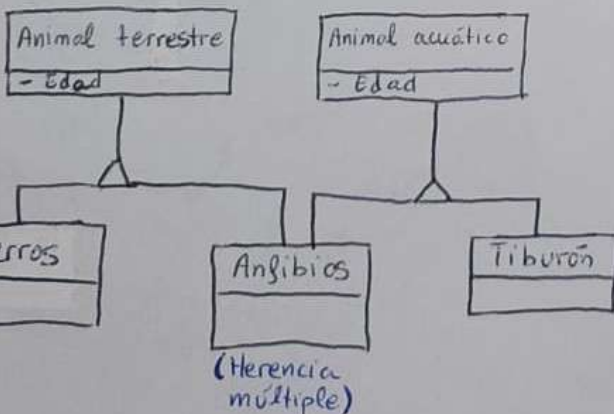 Animal terrestre
- Edad
Animal acuático
- Edad
erros
Anfibios
Tiburón
(Herencia
múltiple)